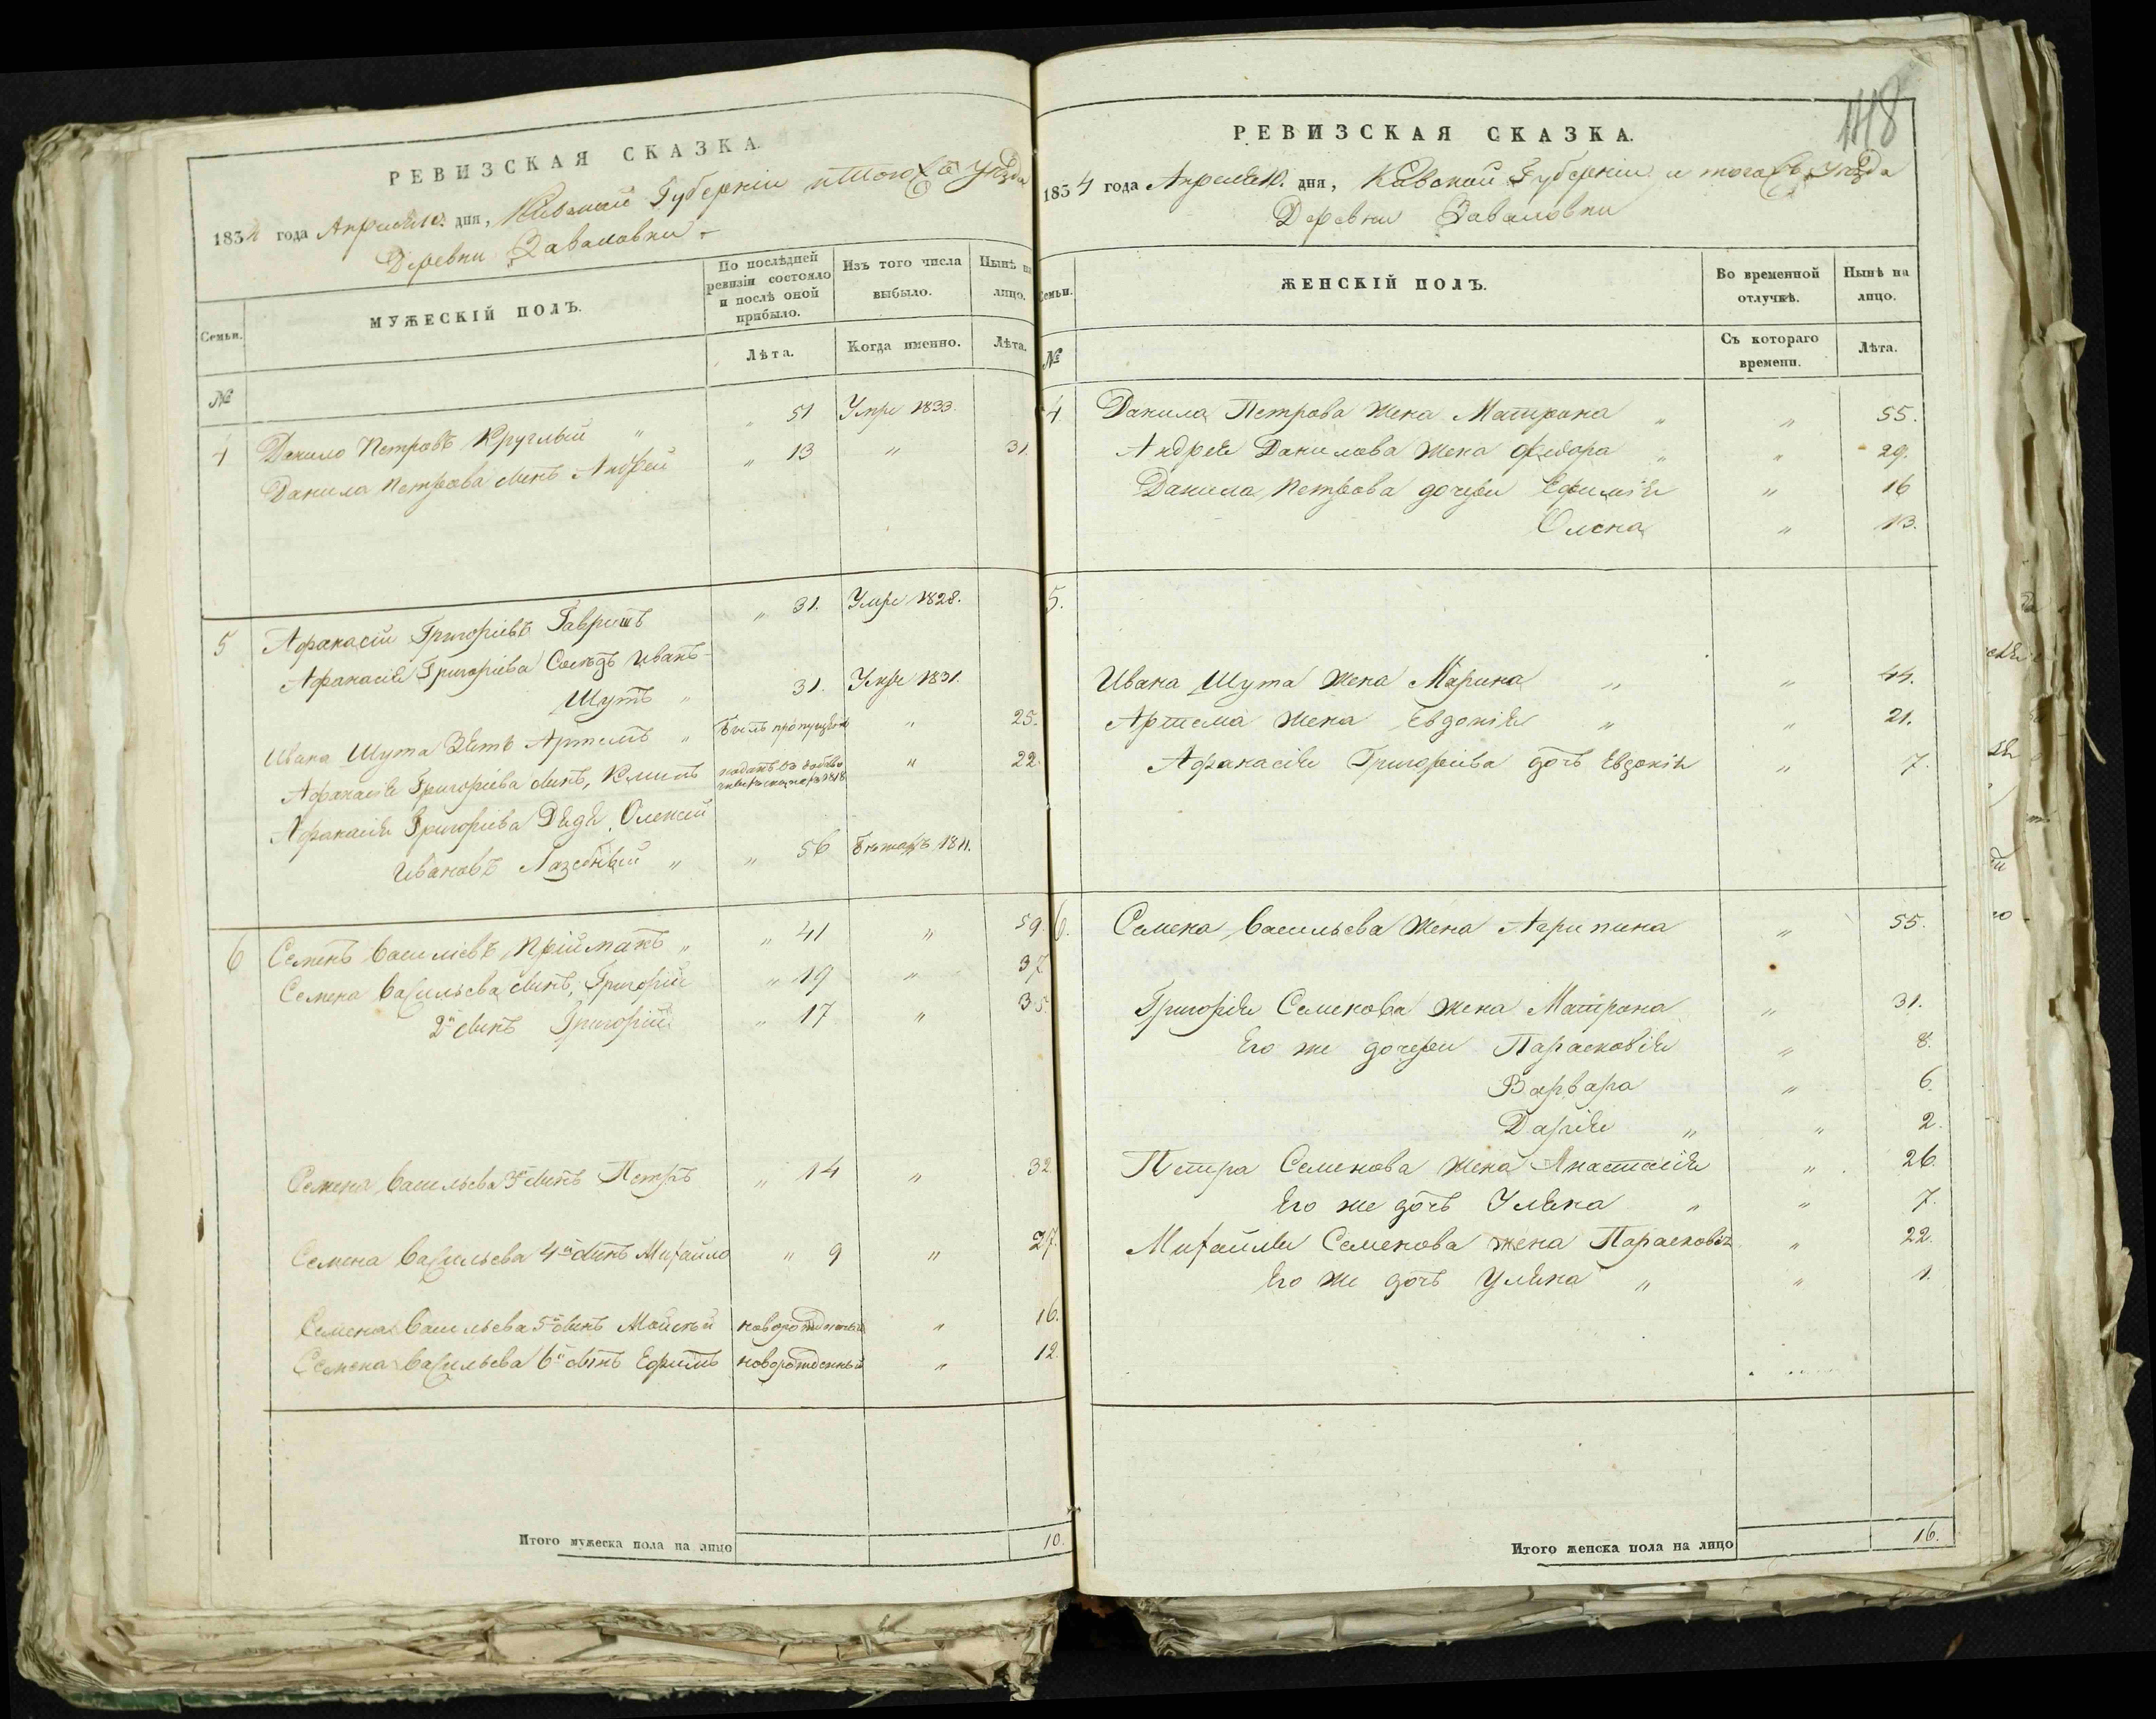 РЕВИЗСКАЯ СКАЗКА.
1834 года Апреля 10. дня, Киевской Губернии и того Уезда
Деревни Заваловки
Семьи.
МУЖЕСКІЙ ПОЛЪ.
По послѣдней ревизіи состояло и послѣ оной прибыло.
Изъ того числа выбыло.
Нынѣ на лицо.
№
Лѣта.
Когда именно.
Лѣта.
4 Данило Петровъ Круглый " " 51 Умре 1833.
Данила Петрова сынъ Андрей " 13 " 31.
5 Афанасій Григоріевъ Гавришъ " 31. Умре 1828.
Афанасія Григоріева Сосѣдъ Иванъ
Шутъ " 31. Умре 1831.
Ивана Шута Зять Артемъ " Былъ пропущенъ " 25.
Афанасія Григоріева сынъ, Климъ " 22.
Афанасія Григоріева Дядя, Олексій
Ивановъ Лазебный " " 56 Бѣжалъ 1811.
6 Семенъ Василіевъ Пріймакъ " " 41 " 59.
Семена Васильева сынъ, Григорій " 19 " 37
2й сынъ Григорій " 17 " 35
Семена Васильева 3й сынъ Петръ " 14 " 32
Семена Васильева 4й сынъ Михайло " 9 " 27.
Семена Васильева 5й сынъ Мойсѣй новорожденный " 16.
Семена Васильева 6й сынъ Ефимъ новорожденный " 12.
Итого мужеска пола на лицо 10.
148
РЕВИЗСКАЯ СКАЗКА.
1834 года Апреля 10. дня, Киевской Губерніи и того Уезда
Деревни Заваловки
Семьи.
ЖЕНСКІЙ ПОЛЪ.
Во временной отлучкѣ.
Нынѣ на лицо.
№
Съ котораго времени.
Лѣта.
4 Данила Петрова жена Матрона " " 55.
Андрея Данилова жена Федора " " 29.
Данила Петрова дочери Ефимія " 16
Олена " 13.
5.
Ивана Шута жена Марина " " 44.
Артема жена Евдокія " " 21.
Афанасія Григоріева дочь Евдокія " 7.
6. Семена Васильева жена Агрипина " 55.
Григорія Семенова жена Матрона " 31.
Его же дочери Парасковія " 8.
Варвара " 6.
Дарія " " 2.
Петра Семенова жена Анастасія " 26.
Его же дочь Уляна " " 7.
Михайлы Семенова жена Парасковія " 22.
Его же дочь Уляна " " 1.
Итого женска пола на лицо 16.